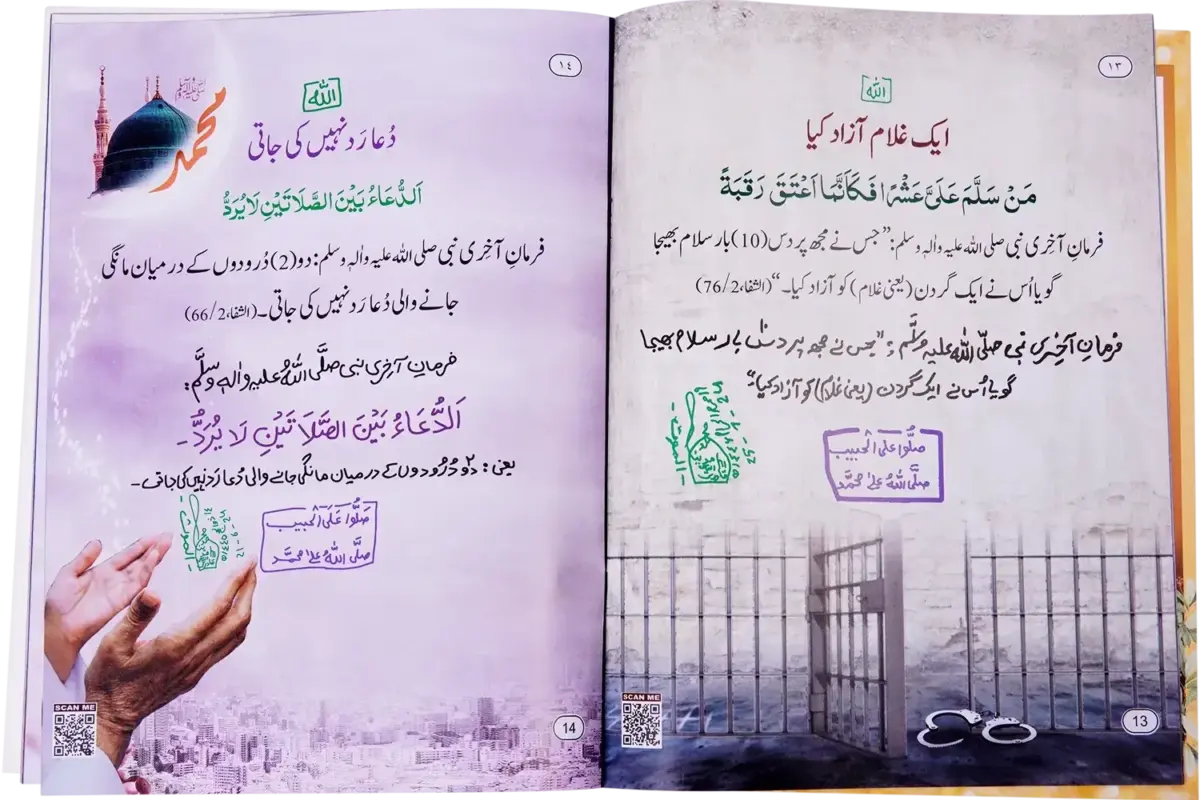 ١٣
الله
ایک غلام آزاد کیا
مَنْ سَلَّمَ عَلَیَّ عَشْرًا فَکَاَنَّمَا اَعْتَقَ رَقَبَةً
فرمانِ آخری نبی صلی اللہ علیہ واٰلہٖ وسلم: ”جس نے مجھ پر دس (10) بار سلام بھیجا
گویا اُس نے ایک گردن (یعنی غلام) کو آزاد کیا۔“ (الشفا، 76/2)
فرمانِ آخِری نبی صلَّی اللّٰهُ علیہِ وسلَّم: ”جس نے مجھ پر دس بار سلام بھیجا
گویا اُس نے ایک گردن (یعنی غلام) کو آزاد کیا۔“
صلُّوا علی الحبیب
صلَّی اللّٰهُ علٰی محمَّد
SCAN ME
13
١٤
محمد
صلی اللہ علیہ وسلم
الله
دُعا رَد نہیں کی جاتی
اَلدُّعَاءُ بَیْنَ الصَّلَاتَیْنِ لَا یُرَدُّ
فرمانِ آخری نبی صلی اللہ علیہ واٰلہٖ وسلم: دو (2) دُرودوں کے درمیان مانگی
جانے والی دُعا رَد نہیں کی جاتی۔ (الشفا، 66/2)
فرمانِ آخِری نبی صلَّی اللّٰهُ علیہِ واٰلہٖ وسلَّم:
اَلدُّعَاءُ بَیْنَ الصَّلَاتَیْنِ لَا یُرَدُّ۔
یعنی: دو دُرُودوں کے درمیان مانگی جانے والی دُعا رَد نہیں کی جاتی۔
صَلُّوا عَلَی الْحَبِیب
صلَّی اللّٰهُ علٰی محمَّد
SCAN ME
14